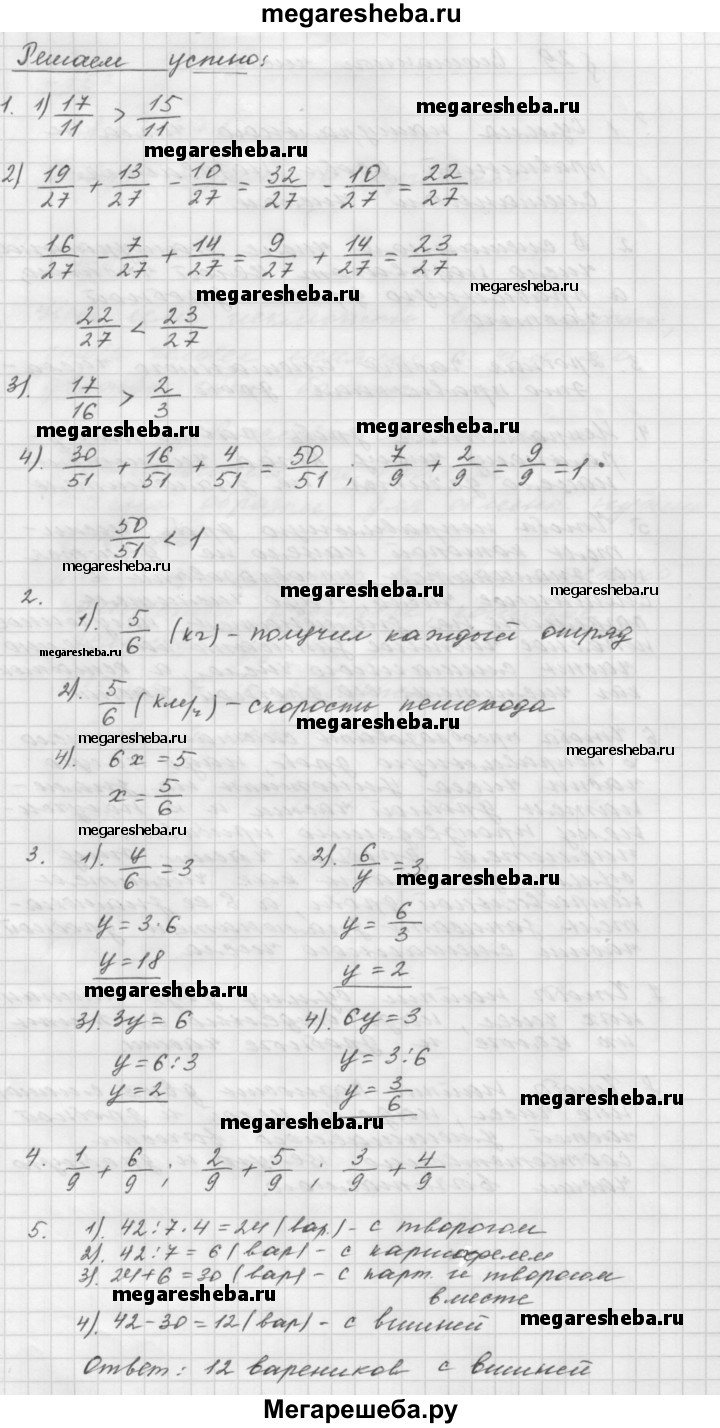 megaresheba.ru
Решаем устно:
1. 1) 17/11 > 15/11
megaresheba.ru
megaresheba.ru
2) 19/27 + 13/27 - 10/27 = 32/27 - 10/27 = 22/27
16/27 - 7/27 + 14/27 = 9/27 + 14/27 = 23/27
megaresheba.ru
megaresheba.ru
22/27 < 23/27
3). 17/16 > 2/3
megaresheba.ru
megaresheba.ru
4). 30/51 + 16/51 + 4/51 = 50/51 ; 7/9 + 2/9 = 9/9 = 1.
50/51 < 1
megaresheba.ru
megaresheba.ru
megaresheba.ru
2.
1). 5/6 (кг) - получил каждый отряд
megaresheba.ru
2). 5/6 (км/ч) - скорость пешехода
megaresheba.ru
megaresheba.ru
megaresheba.ru
4). 6x = 5
x = 5/6
megaresheba.ru
3. 1). y/6 = 3 2). 6/y = 3
megaresheba.ru
y = 3·6 y = 6/3
y = 18 y = 2
megaresheba.ru
3). 3y = 6 4). 6y = 3
y = 6:3 y = 3:6
y = 2 y = 3/6
megaresheba.ru
megaresheba.ru
4. 1/9 + 6/9 ; 2/9 + 5/9 ; 3/9 + 4/9
5. 1). 42:7·4 = 24 (вар) - с творогом
2). 42:7 = 6 (вар) - с картофелем
3). 24+6 = 30 (вар) - с карт. и творогом
вместе
megaresheba.ru
megaresheba.ru
4). 42-30 = 12 (вар) - с вишней
Ответ: 12 вареников с вишней
Мегарешеба.ру